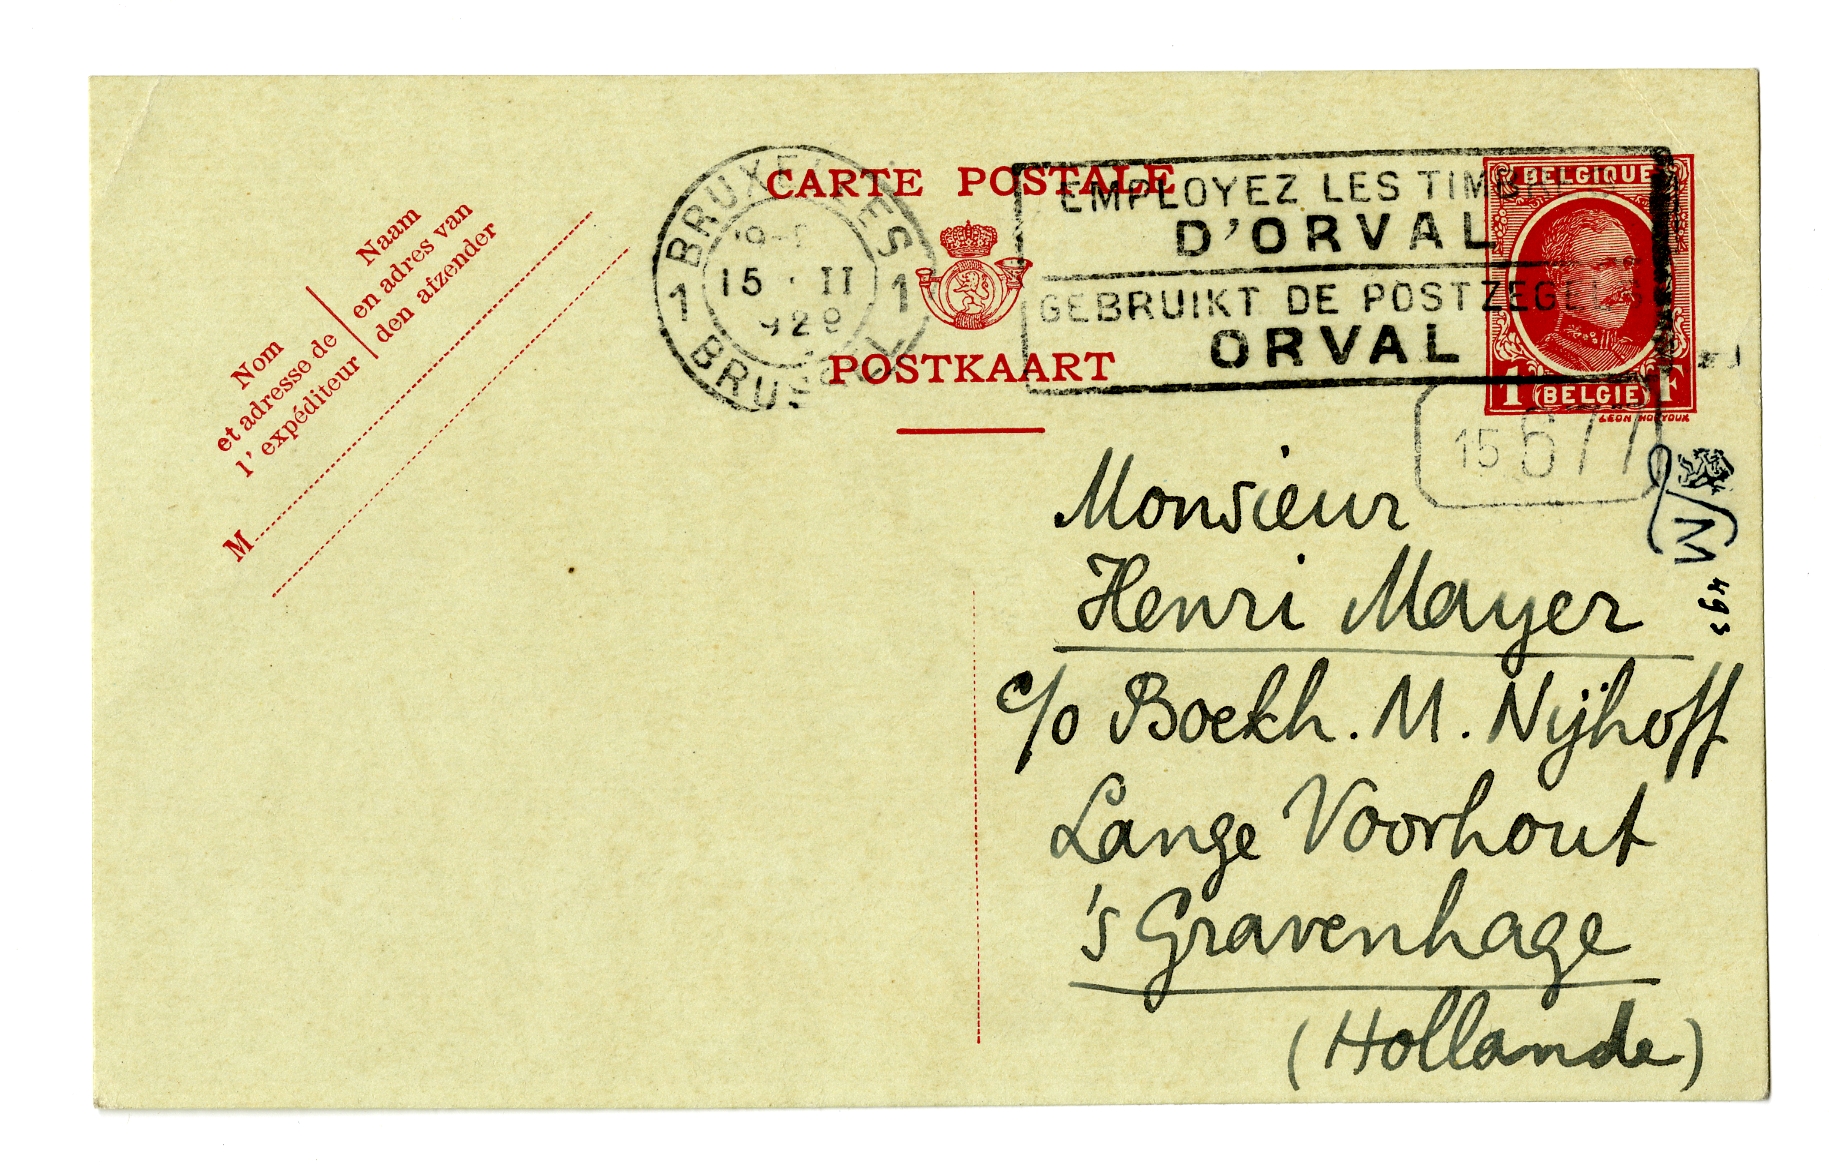 CARTE POSTALE
POSTKAART
Nom
et adresse de
l'expéditeur
Naam
en adres van
den afzender
M
1 BRUXELLES 1
15 · II
BRUSSEL
EMPLOYEZ LES TIMBRES
D'ORVAL
GEBRUIKT DE POSTZEGELS
ORVAL
BELGIQUE
1 F
BELGIE
15 677
Monsieur
Henri Mayer
c/o Boekh. M. Nijhoff
Lange Voorhout
's Gravenhage
(Hollande)
M
493